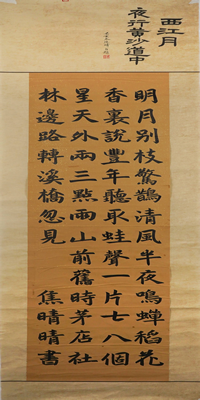 西江月
夜行黄沙道中
明月别枝驚鵲清風半夜鳴蟬稻花
香裏説豐年聽取蛙聲一片七八個
星天外兩三點雨山前舊時茅店社
林邊路轉溪橋忽見 焦晴晴書